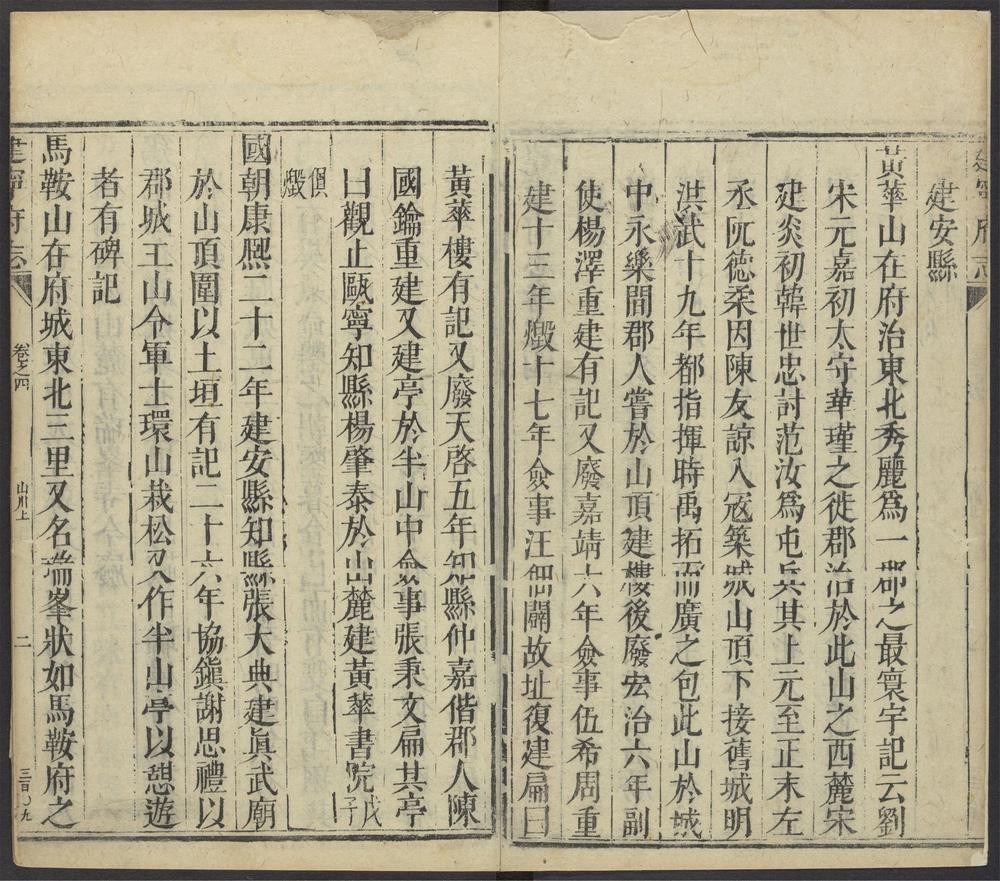 建寧府志
建安縣
黃華山在府治東北秀麗為一郡之最寰宇記云劉
宋元嘉初太守華瑾之徙郡治於此山之西麓宋
建炎初韓世忠討范汝為屯兵其上元至正末左
丞阮德柔因陳友諒入寇築城山頂下接舊城明
洪武十九年都指揮時禹拓而廣之包此山於城
中永樂間郡人嘗於山頂建樓後廢宏治六年副
使楊澤重建有記又廢嘉靖六年僉事伍希周重
建十三年燬十七年僉事汪佃闢故址復建扁曰
黃華樓有記又廢天啓五年知縣仲嘉偕郡人陳
國鑰重建又建亭於半山中僉事張秉文扁其亭
曰觀止甌寧知縣楊肇泰於山麓建黃華書院戊子
俱燬
國朝康熙二十二年建安縣知縣張大典建眞武廟
於山頂圍以土垣有記二十六年協鎮謝思禮以
郡城王山令軍士環山栽松又作半山亭以憩遊
者有碑記
馬鞍山在府城東北三里又名瑞峯狀如馬鞍府之
建寧府志
卷之四
山川上
二